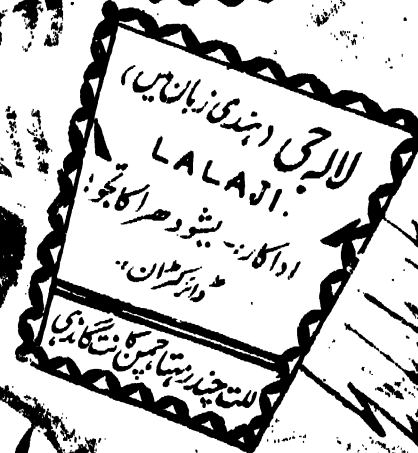 لالہ جی (ہندی زبان میں)
LALAJI.
اداکار:- یشودھرا کاٹجو؛
ڈائرکٹران:-
للتا چندر مہتا چمن کانت گاندہی